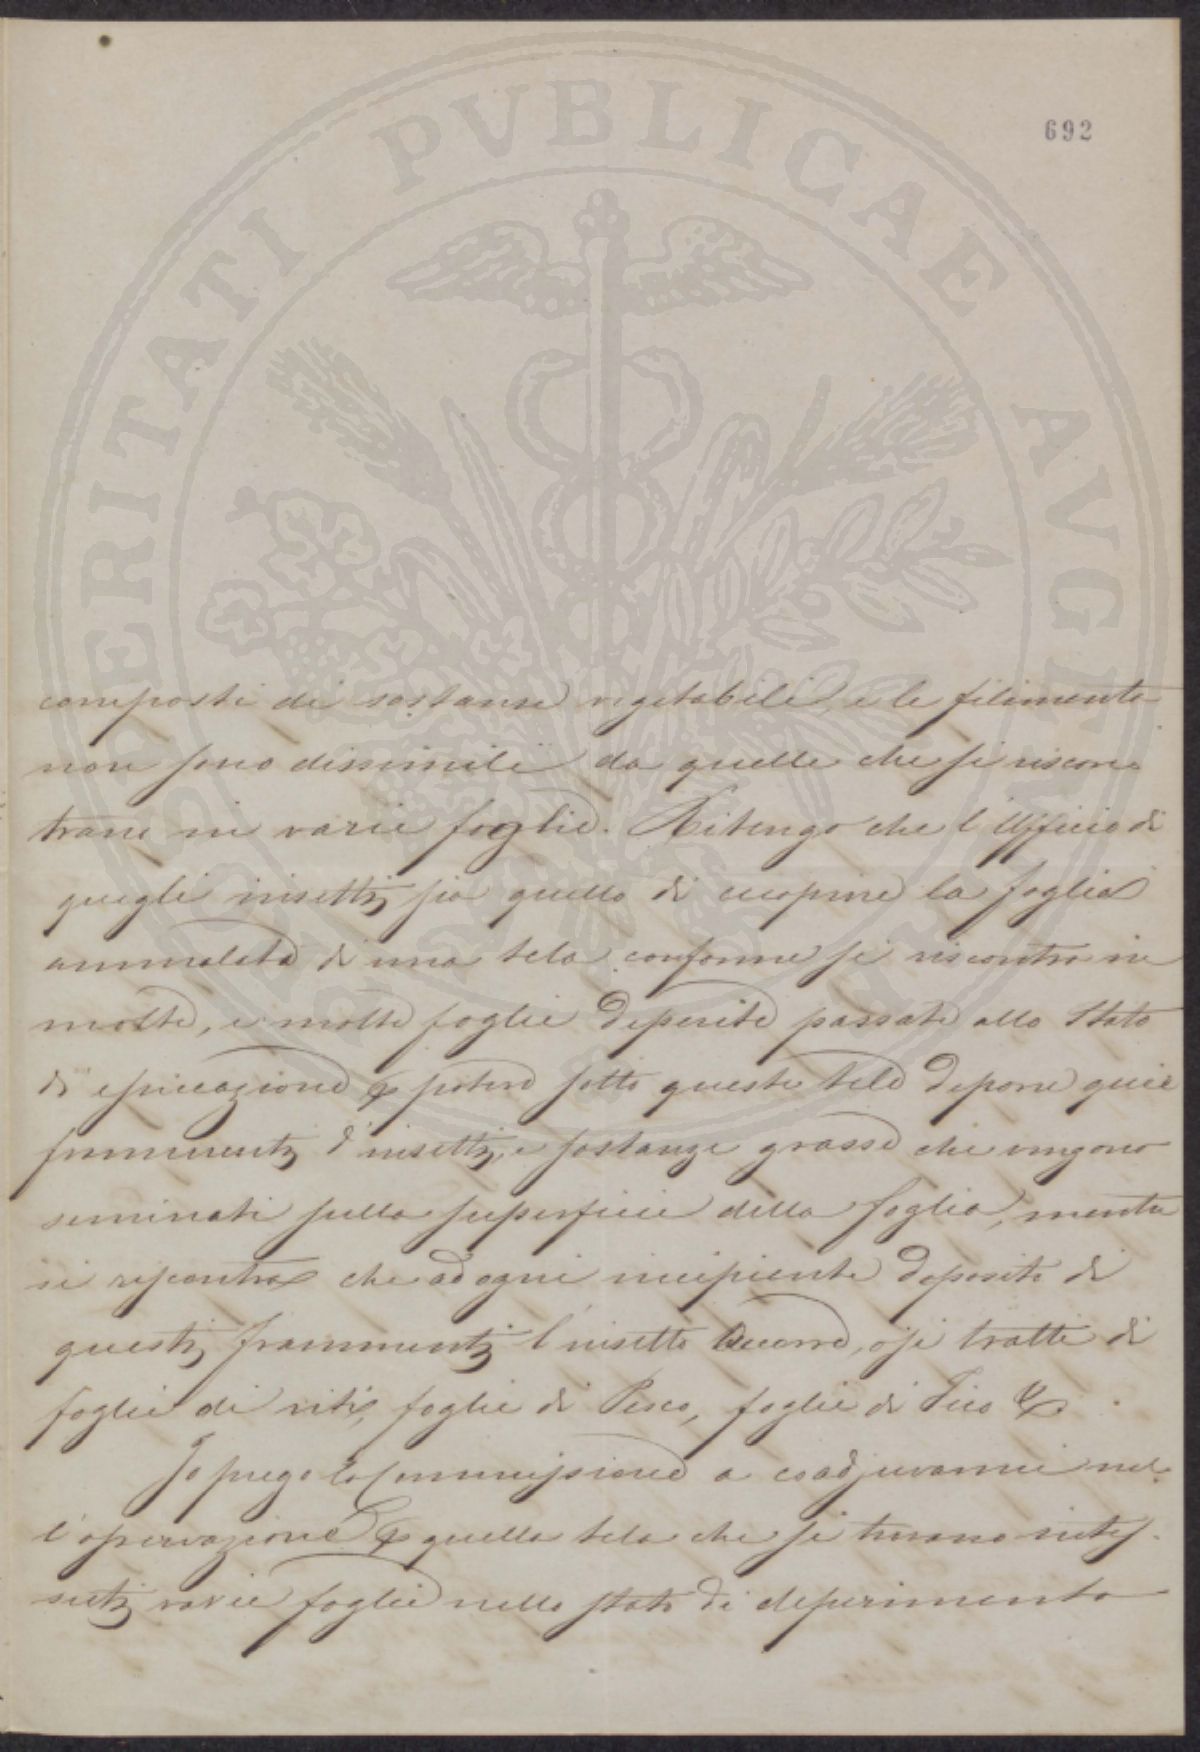 692
PROSPERITATI PUBLICAE AVGENDAE
composti di sostanze vegetabili, e le filimenta
non sono dissimili da quelle che si riscon
trano in varie foglie. Ritengo che l'Ufficio di
quegli insetti sia quello di la foglia
ammalata di una tela conforme si riscontra in
molte, e molte foglie deperite passate allo Stato
di essiccazione e potere sotto queste tele deporre quei
frammenti d'insetti, e sostanze grasse che vengono
seminati sulla superficie della foglia, mentre
si riscontra che ad ogni incipiente deposito di
questi frammenti l'insetto accorre, o si tratti di
foglie di viti, foglie di Pesco, foglie di Fico &
Io prego la Commissione a coadjuvarmi nel-
l'osservazione quella tela che si trovano
varie foglie nello stato di deperimento